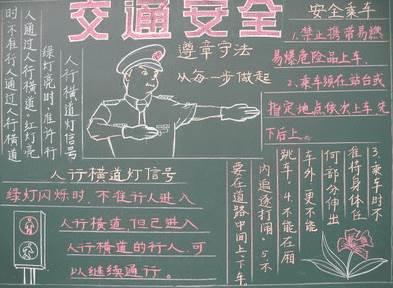 交通安全
遵章守法
从每一步做起
人行横道灯信号
绿灯亮时准许行
人通过人行横道。红灯亮
时不准行人通过人行横道
人行横道灯信号
绿灯闪烁时,不准行人进入
人行横道,但已进入
人行横道的行人,可
以继续通行。
安全乘车
1.禁止携带易燃
易爆危险品上车.
2.乘车须在站台或
指定地点依次上车,先
下后上。
3.乘车时不
准将身体任
何部分伸出
车外,更不能
跳车。4.不能在厢
内追逐打闹。5.不
要在道路中间上、下车